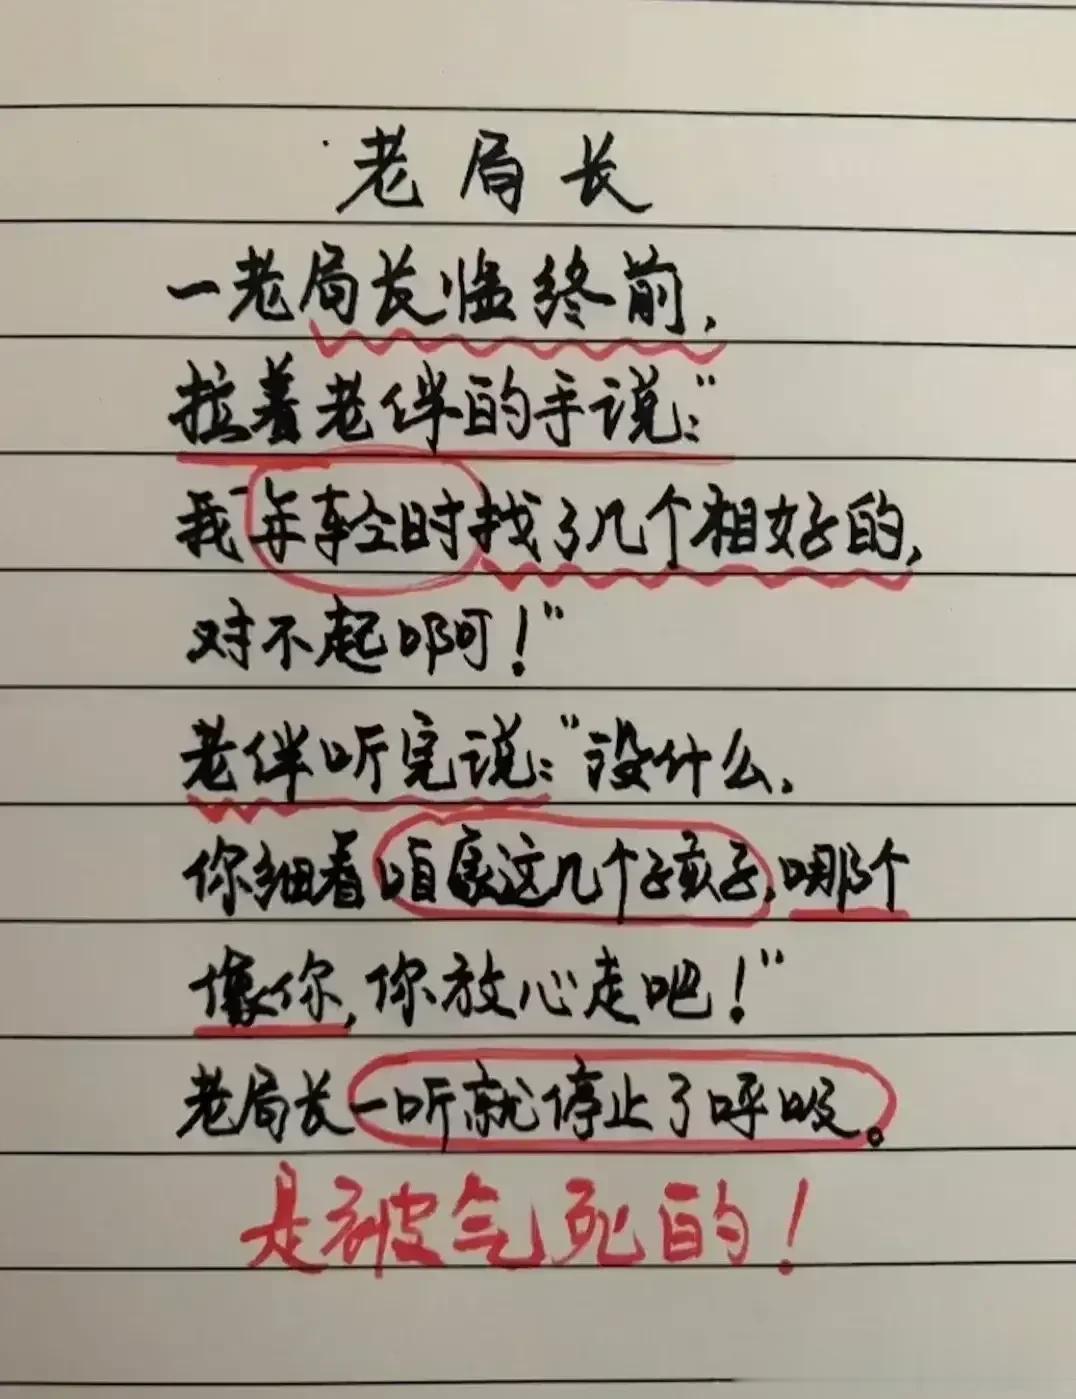 老局长
一老局长临终前,
拉着老伴的手说:“
我年轻时找了几个相好的,
对不起啊!”
老伴听完说:“没什么,
你细看咱家这几个孩子,哪个
像你,你放心走吧!”
老局长一听就停止了呼吸。
是被气死的!